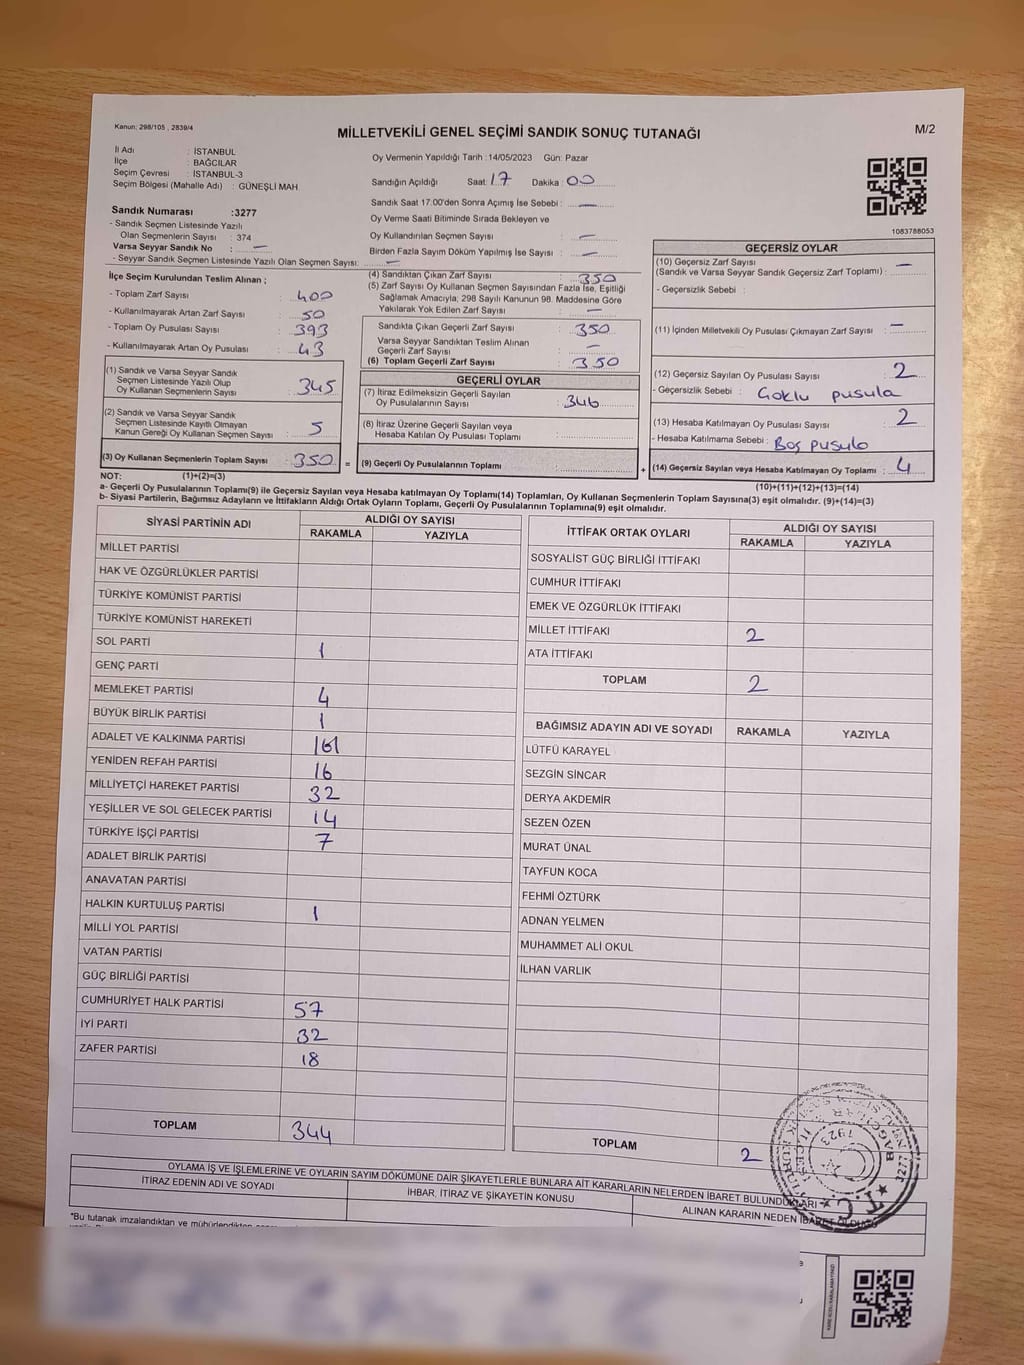 Kanun: 298/105 , 2839/4
MİLLETVEKİLİ GENEL SEÇİMİ SANDIK SONUÇ TUTANAĞI
M/2
İl Adı : İSTANBUL
İlçe : BAĞCILAR
Seçim Çevresi : İSTANBUL-3
Seçim Bölgesi (Mahalle Adı) : GÜNEŞLİ MAH.
Sandık Numarası :3277
- Sandık Seçmen Listesinde Yazılı
Olan Seçmenlerin Sayısı : 374
Varsa Seyyar Sandık No : —
- Seyyar Sandık Seçmen Listesinde Yazılı Olan Seçmen Sayısı: —
Oy Vermenin Yapıldığı Tarih :14/05/2023 Gün: Pazar
Sandığın Açıldığı Saat: 17 Dakika : 00
Sandık Saat 17:00'den Sonra Açımış İse Sebebi : —
Oy Verme Saati Bitiminde Sırada Bekleyen ve
Oy Kullandırılan Seçmen Sayısı : —
Birden Fazla Sayım Döküm Yapılmış İse Sayısı : —
1083788053
İlçe Seçim Kurulundan Teslim Alınan ;
- Toplam Zarf Sayısı : 400
- Kullanılmayarak Artan Zarf Sayısı : 50
- Toplam Oy Pusulası Sayısı : 393
- Kullanılmayarak Artan Oy Pusulası : 43
(1) Sandık ve Varsa Seyyar Sandık
Seçmen Listesinde Yazılı Olup
Oy Kullanan Seçmenlerin Sayısı : 345
(2) Sandık ve Varsa Seyyar Sandık
Seçmen Listesinde Kayıtlı Olmayan
Kanun Gereği Oy Kullanan Seçmen Sayısı : 5
(3) Oy Kullanan Seçmenlerin Toplam Sayısı : 350 =
(4) Sandıktan Çıkan Zarf Sayısı : 350
(5) Zarf Sayısı Oy Kullanan Seçmen Sayısından Fazla İse, Eşitliği
Sağlamak Amacıyla; 298 Sayılı Kanunun 98. Maddesine Göre
Yakılarak Yok Edilen Zarf Sayısı : —
Sandıkta Çıkan Geçerli Zarf Sayısı : 350
Varsa Seyyar Sandıktan Teslim Alınan
Geçerli Zarf Sayısı : —
(6) Toplam Geçerli Zarf Sayısı : 350
GEÇERLİ OYLAR
(7) İtiraz Edilmeksizin Geçerli Sayılan
Oy Pusulalarının Sayısı : 346
(8) İtiraz Üzerine Geçerli Sayılan veya
Hesaba Katılan Oy Pusulası Toplamı :
(9) Geçerli Oy Pusulalarının Toplamı : +
GEÇERSİZ OYLAR
(10) Geçersiz Zarf Sayısı
(Sandık ve Varsa Seyyar Sandık Geçersiz Zarf Toplamı) : —
- Geçersizlik Sebebi :
(11) İçinden Milletvekili Oy Pusulası Çıkmayan Zarf Sayısı : —
(12) Geçersiz Sayılan Oy Pusulası Sayısı : 2
- Geçersizlik Sebebi : Çoklu pusula
(13) Hesaba Katılmayan Oy Pusulası Sayısı : 2
- Hesaba Katılmama Sebebi : Boş pusula
(14) Geçersiz Sayılan veya Hesaba Katılmayan Oy Toplamı : 4
NOT: (1)+(2)=(3)
(10)+(11)+(12)+(13)=(14)
a- Geçerli Oy Pusulalarının Toplamı(9) ile Geçersiz Sayılan veya Hesaba katılmayan Oy Toplamı(14) Toplamları, Oy Kullanan Seçmenlerin Toplam Sayısına(3) eşit olmalıdır. (9)+(14)=(3)
b- Siyasi Partilerin, Bağımsız Adayların ve İttifakların Aldığı Ortak Oyların Toplamı, Geçerli Oy Pusulalarının Toplamına(9) eşit olmalıdır.
SİYASİ PARTİNİN ADI ALDIĞI OY SAYISI
RAKAMLA YAZIYLA
MİLLET PARTİSİ
HAK VE ÖZGÜRLÜKLER PARTİSİ
TÜRKİYE KOMÜNİST PARTİSİ
TÜRKİYE KOMÜNİST HAREKETİ
SOL PARTİ 1
GENÇ PARTİ
MEMLEKET PARTİSİ 4
BÜYÜK BİRLİK PARTİSİ 1
ADALET VE KALKINMA PARTİSİ 161
YENİDEN REFAH PARTİSİ 16
MİLLİYETÇİ HAREKET PARTİSİ 32
YEŞİLLER VE SOL GELECEK PARTİSİ 14
TÜRKİYE İŞÇİ PARTİSİ 7
ADALET BİRLİK PARTİSİ
ANAVATAN PARTİSİ
HALKIN KURTULUŞ PARTİSİ 1
MİLLİ YOL PARTİSİ
VATAN PARTİSİ
GÜÇ BİRLİĞİ PARTİSİ
CUMHURİYET HALK PARTİSİ 57
İYİ PARTİ 32
ZAFER PARTİSİ 18
TOPLAM 344
İTTİFAK ORTAK OYLARI ALDIĞI OY SAYISI
RAKAMLA YAZIYLA
SOSYALİST GÜÇ BİRLİĞİ İTTİFAKI
CUMHUR İTTİFAKI
EMEK VE ÖZGÜRLÜK İTTİFAKI
MİLLET İTTİFAKI 2
ATA İTTİFAKI
TOPLAM 2
BAĞIMSIZ ADAYIN ADI VE SOYADI RAKAMLA YAZIYLA
LÜTFÜ KARAYEL
SEZGİN SİNCAR
DERYA AKDEMİR
SEZEN ÖZEN
MURAT ÜNAL
TAYFUN KOCA
FEHMİ ÖZTÜRK
ADNAN YELMEN
MUHAMMET ALİ OKUL
İLHAN VARLIK
TOPLAM 2
OYLAMA İŞ VE İŞLEMLERİNE VE OYLARIN SAYIM DÖKÜMÜNE DAİR ŞİKAYETLERLE BUNLARA AİT KARARLARIN NELERDEN İBARET BULUNDUKLARI
İTİRAZ EDENİN ADI VE SOYADI İHBAR, İTİRAZ VE ŞİKAYETİN KONUSU ALINAN KARARIN NEDEN İBARET OLDUĞU
*Bu tutanak imzalandıktan ve mühürlendikten
T.C.